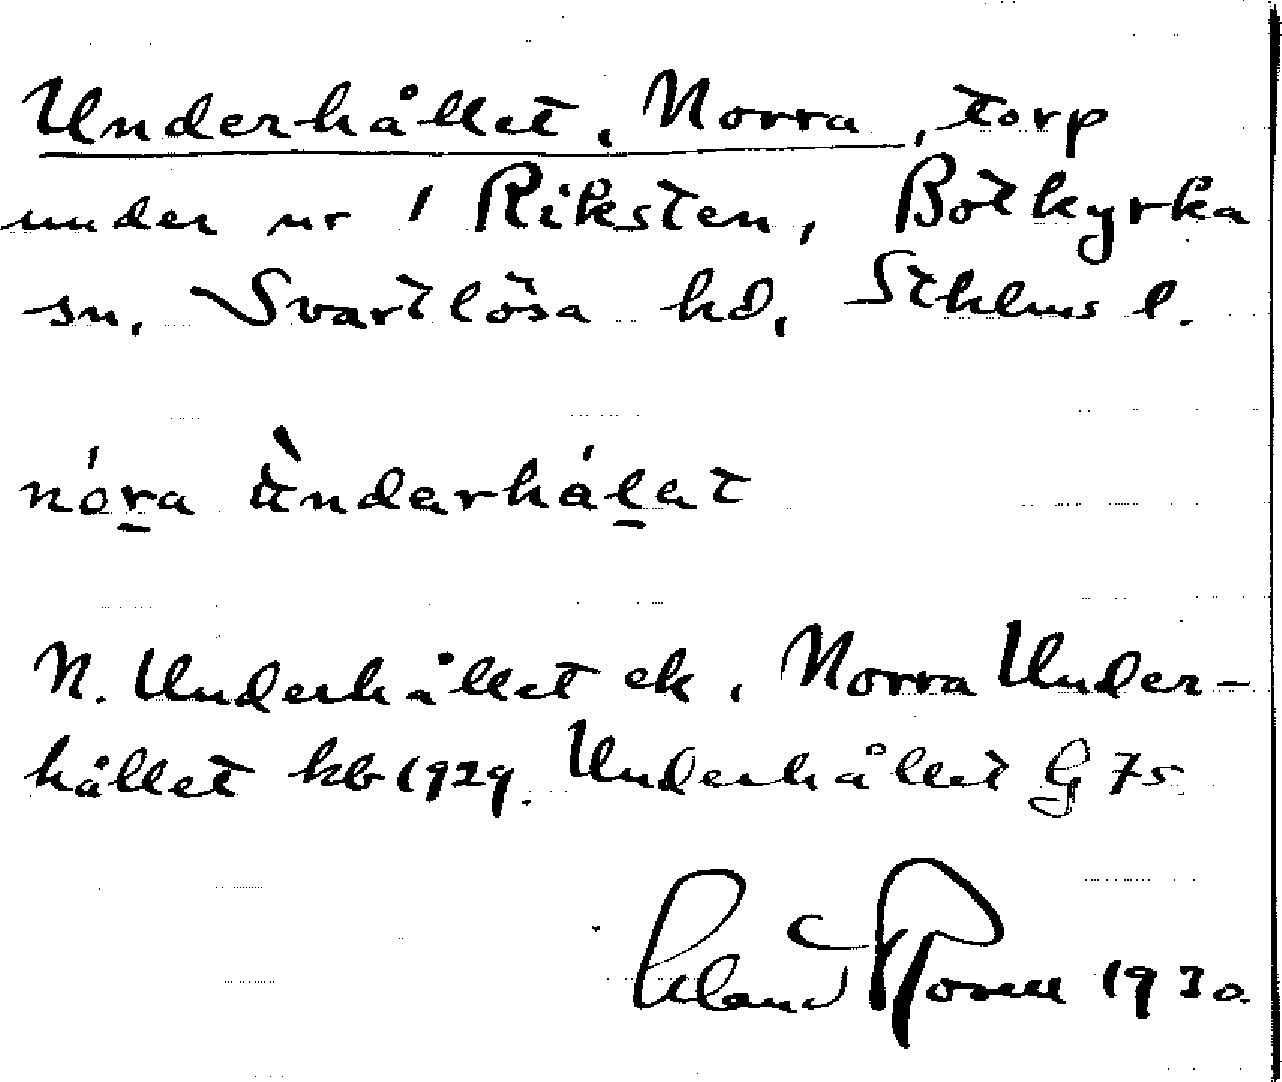 Underhållet, Norra, torp
under nr 1 Riksten, Botkyrka
sn, Svartlösa hd, Sthlms l.
nór̲a ùndarhál̲at
N. Underhållet ek, Norra Under-
hållet kb 1929. Underhållet G 75
Erland Rosell 1930.